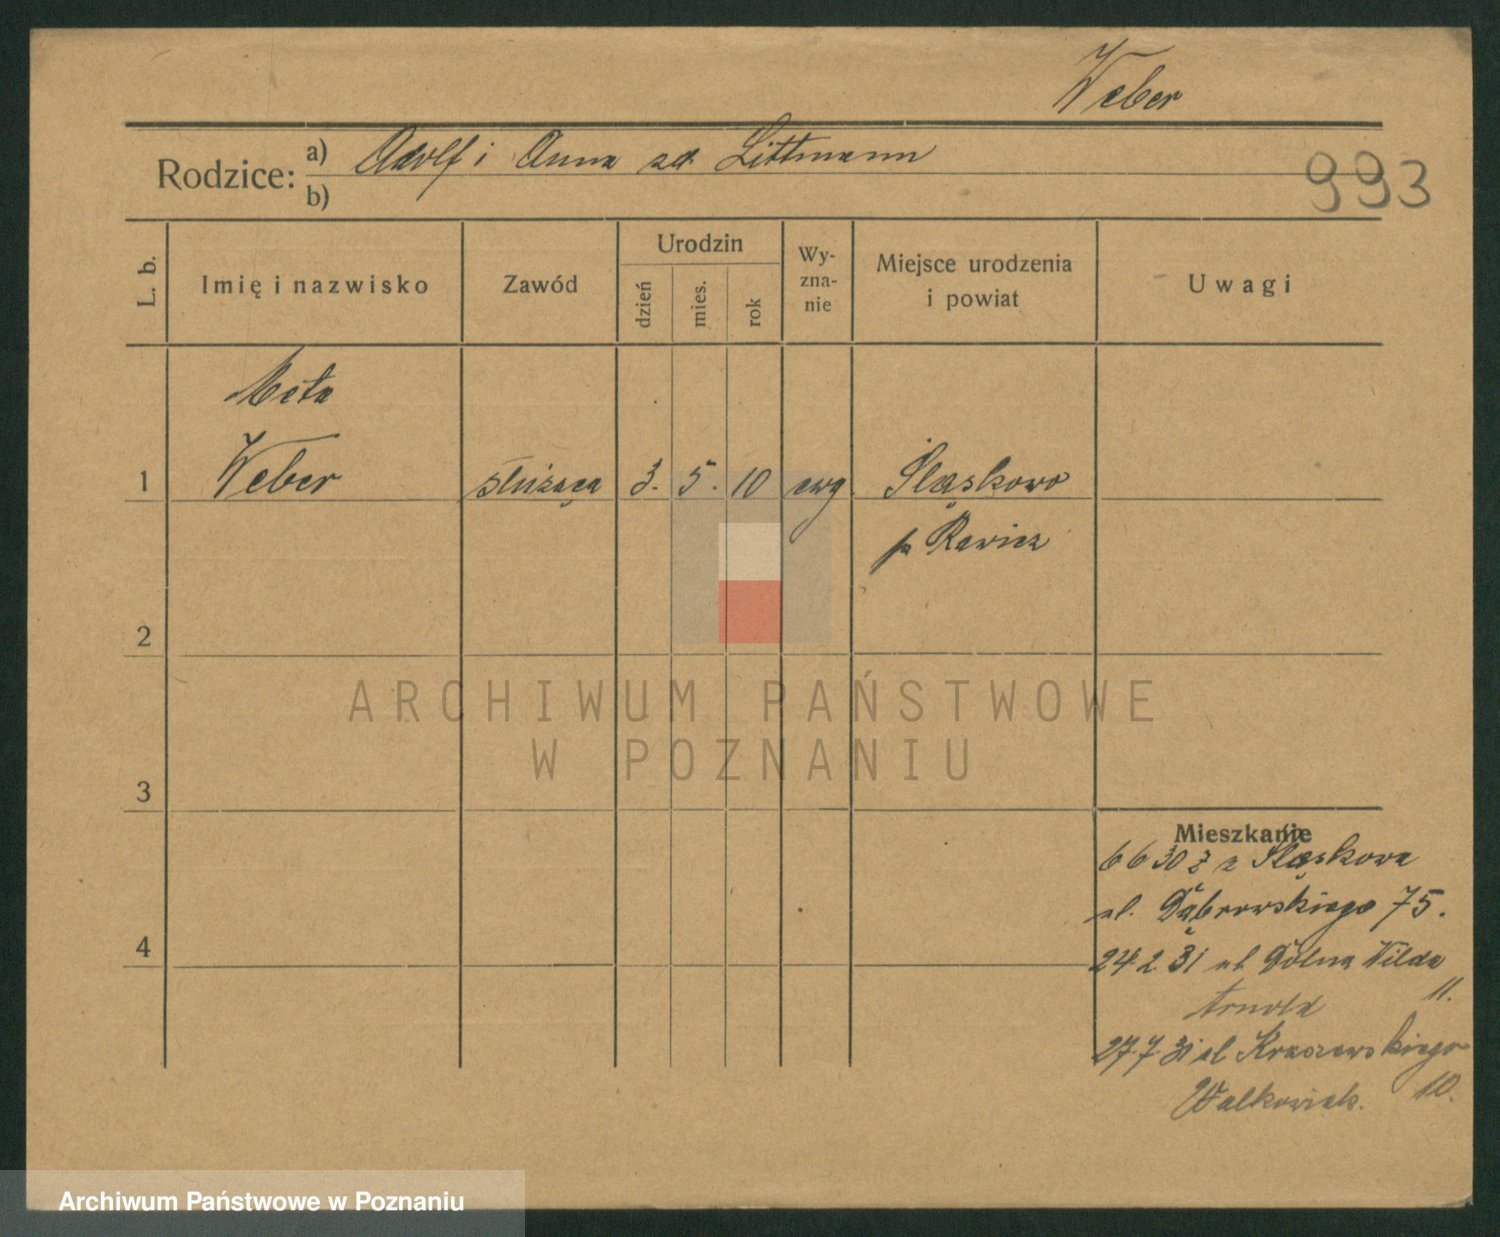 Weber
Rodzice: a) Adolf i Anna zd. Littmann
b)
993
L. b.
Imię i nazwisko
Zawód
Urodzin
dzień
mies.
rok
Wy-
zna-
nie
Miejsce urodzenia
i powiat
Uwagi
Meta
1 Weber służąca 3. 5. 10 ewg Śląskowo
p Rawicz
2
ARCHIWUM PAŃSTWOWE
W POZNANIU
3
Mieszkanie
6 6 30 z Śląskowa
ul. Dąbrowskiego 75.
4
24 2 31 ul Dolna Wilda
11.
Arnold
27 7 31 ul Kraszewskiego
10.
Walkowiak.
Archiwum Państwowe w Poznaniu